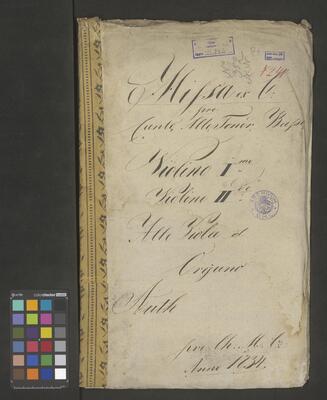 Missa ex C.
pro
Canto, Alto Tenor Basso
Violino I mo
Violino II do
Alto Viola et
Organo
Auth
pro Ch. M. C.
Anno 1834.